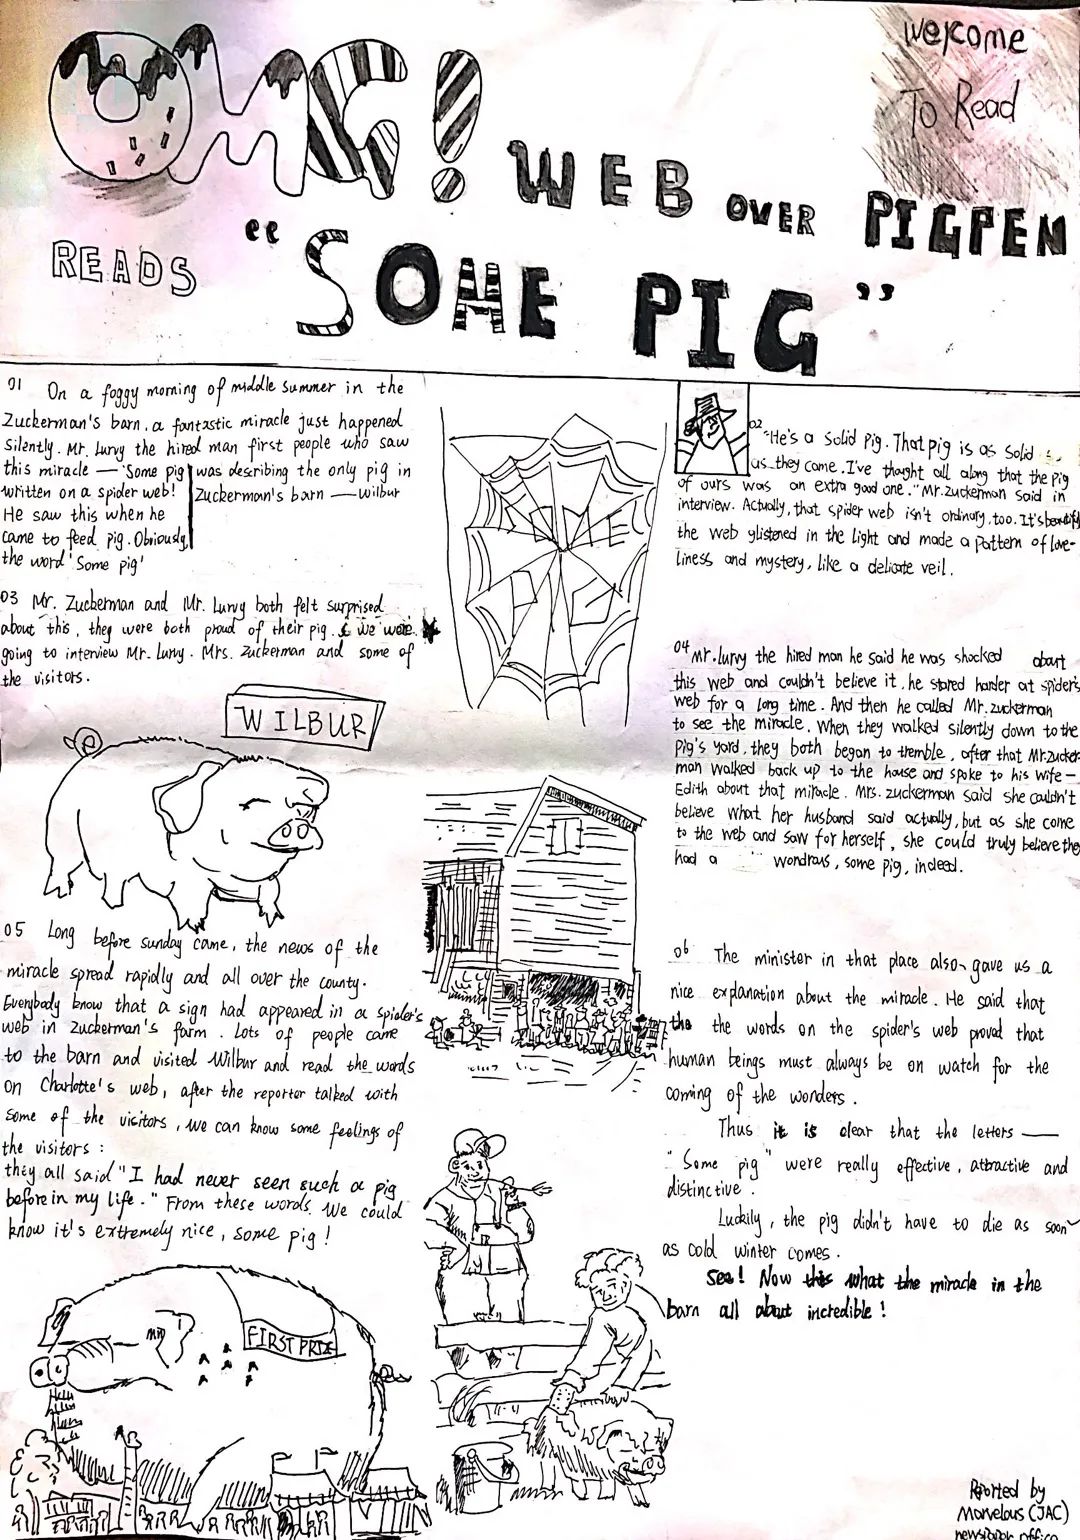 Welcome
To Read
OMG! WEB OVER PIGPEN
READS "SOME PIG"
01 On a foggy morning of middle summer in the
Zuckerman's barn, a fantastic miracle just happened
silently. Mr. Lurvy the hired man first people who saw
this miracle — 'Some pig
written on a spider web!
He saw this when he
came to feed pig. Obviously,
the word 'Some pig'
was describing the only pig in
Zuckerman's barn — Wilbur
02 "He's a solid pig. That pig is as solid
as they come. I've thought all along that the pig
of ours was an extra good one." Mr. Zuckerman said in
interview. Actually, that spider web isn't ordinary, too. It's beautiful
the web glistened in the light and made a pattern of love-
liness and mystery, like a delicate veil.
SOME
PIG
03 Mr. Zuckerman and Mr. Lurvy both felt surprised
about this, they were both proud of their pig. & we were
going to interview Mr. Lurvy. Mrs. Zuckerman and some of
the visitors.
04 Mr. Lurvy the hired man he said he was shocked about
this web and couldn't believe it, he stared harder at spider's
web for a long time. And then he called Mr. Zuckerman
to see the miracle. When they walked silently down to the
pig's yard, they both began to tremble, after that Mr. Zucker-
man walked back up to the house and spoke to his wife —
Edith about that miracle. Mrs. Zuckerman said she couldn't
believe what her husband said actually, but as she come
to the web and saw for herself, she could truly believe they
had a wondrous, some pig, indeed.
WILBUR
05 Long before sunday came, the news of the
miracle spread rapidly and all over the county.
Everybody know that a sign had appeared in a spider's
web in Zuckerman's farm. Lots of people came
to the barn and visited Wilbur and read the words
on Charlotte's web, after the reporter talked with
some of the visitors, we can know some feelings of
the visitors:
they all said "I had never seen such a pig
before in my life." From these words, we could
know it's extremely nice, some pig!
06 The minister in that place also gave us a
nice explanation about the miracle. He said that
the the words on the spider's web proved that
human beings must always be on watch for the
coming of the wonders.
Thus it is clear that the letters —
"Some pig" were really effective, attractive and
distinctive.
Luckily, the pig didn't have to die as soon
as cold winter comes.
See! Now this what the miracle in the
barn all about incredible!
FIRST PRIZE
Rported by
Marvelous (JAC)
newspaper office